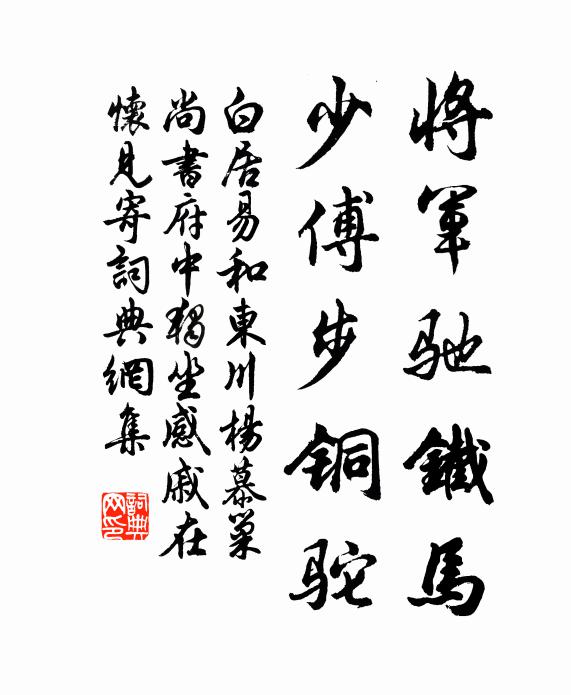 將軍馳鐵馬
少傅步铜駝
白居易和東川楊慕巢
尚書府中獨坐感戚在
懷見寄詞典網集
詞典
网印